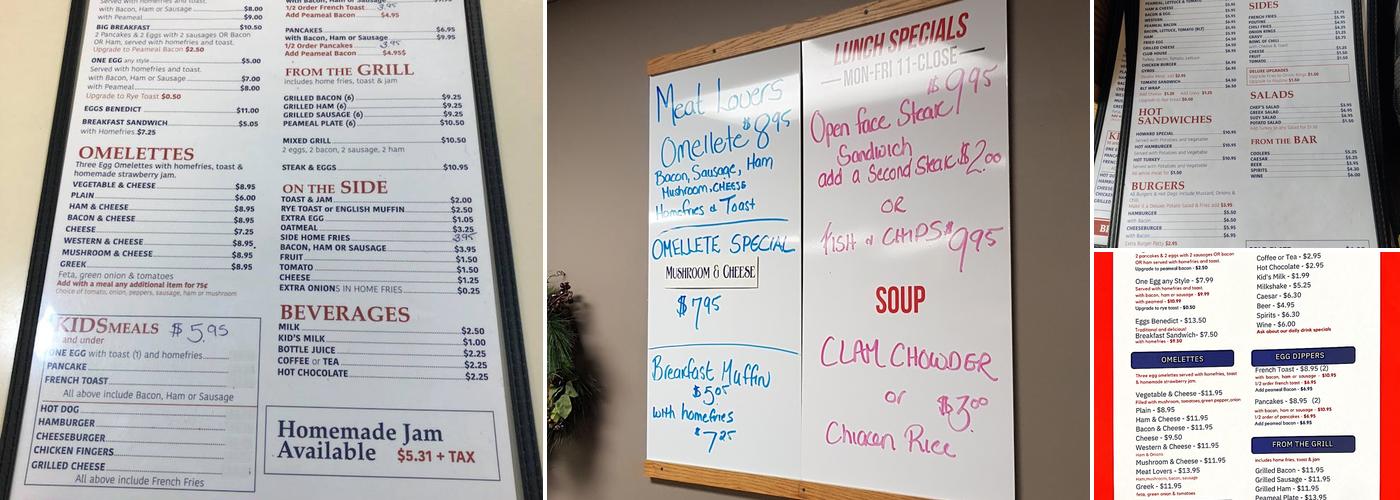 Served with homefries and toast.
with Bacon, Ham or Sausage $8.00
with Peameal $9.00
BIG BREAKFAST $10.50
2 Pancakes & 2 Eggs with 2 sausages OR Bacon
OR Ham, served with homefries and toast.
Upgrade to Peameal Bacon $2.50
ONE EGG any style $5.00
Served with homefries and toast.
with Bacon, Ham or Sausage $7.00
with Peameal $8.00
Upgrade to Rye Toast $0.50
EGGS BENEDICT $11.00
BREAKFAST SANDWICH $5.05
with Homefries $7.25
OMELETTES
Three Egg Omelettes with homefries, toast &
homemade strawberry jam.
VEGETABLE & CHEESE $8.95
PLAIN $6.00
HAM & CHEESE $8.95
BACON & CHEESE $8.95
CHEESE $7.25
WESTERN & CHEESE $8.95
MUSHROOM & CHEESE $8.95
GREEK $8.95
Feta, green onion & tomatoes
Add with a meal any additional item for 75¢
Choice of tomato, onion, peppers, sausage, ham or mushroom
KIDS MEALS $5.95
and under
ONE EGG with toast (1) and homefries
PANCAKE
FRENCH TOAST
All above include Bacon, Ham or Sausage
HOT DOG
HAMBURGER
CHEESEBURGER
CHICKEN FINGERS
GRILLED CHEESE
All above include French Fries
with Bacon, Ham or Sausage
1/2 Order French Toast 3.95
Add Peameal Bacon $4.95
PANCAKES $6.95
with Bacon, Ham or Sausage $9.95
1/2 Order Pancakes 3.95
Add Peameal Bacon $4.95$
FROM THE GRILL
includes home fries, toast & jam
GRILLED BACON (6) $9.25
GRILLED HAM (6) $9.25
GRILLED SAUSAGE (6) $9.25
PEAMEAL PLATE (6) $10.50
MIXED GRILL $10.50
2 eggs, 2 bacon, 2 sausage, 2 ham
STEAK & EGGS $10.95
ON THE SIDE
TOAST & JAM $2.00
RYE TOAST or ENGLISH MUFFIN $2.50
EXTRA EGG $1.05
OATMEAL $3.25
SIDE HOME FRIES 3.95
BACON, HAM OR SAUSAGE $3.95
FRUIT $1.50
TOMATO $1.50
CHEESE $1.25
EXTRA ONIONS IN HOME FRIES $0.25
BEVERAGES
MILK $2.50
KID'S MILK $1.00
BOTTLE JUICE $2.25
COFFEE or TEA $2.25
HOT CHOCOLATE $2.25
Homemade Jam
Available $5.31 + TAX
Meat Lovers
Omellete $8.95
Bacon, Sausage, Ham
Mushroom, CHEESE
Homefries & Toast
OMELLETE SPECIAL
MUSHROOM & CHEESE
$7.95
Breakfast Muffin
$5.05
with homefries
$7.25
LUNCH SPECIALS
MON-FRI 11-CLOSE
$9.95
Open face Steak
Sandwich
add a Second Steak $2.00
OR
FISH & CHIPS $9.95
SOUP
CLAM CHOWDER
or $3.00
Chicken Rice
PEAMEAL, LETTUCE & TOMATO
HAM & CHEESE
BACON & EGG
WESTERN
PEAMEAL BACON
BACON, LETTUCE, TOMATO (BLT)
HAM
FRIED EGG
GRILLED CHEESE
CLUB HOUSE
Turkey, Bacon, Tomato, Lettuce
CHICKEN BURGER
GYROS
TOMATO SANDWICH
BLT WRAP
HOT
SANDWICHES
HOWARD SPECIAL $10.95
Served with Potatoes and Vegetable
HOT HAMBURGER $10.95
Served with Potatoes and Vegetable
HOT TURKEY $10.95
Served with Potatoes and Vegetable
All white meat for $1.00
BURGERS
HAMBURGER $5.50
with Bacon $6.50
CHEESEBURGER $5.95
with Bacon
Extra Burger Patty $2.95
SIDES
FRENCH FRIES
POUTINE
CHILI FRIES
ONION RINGS
GRAVY
BOWL OF CHILI
with Cheese & Toast
CHEESE
FRUIT
TOMATO
DELUXE UPGRADES
SALADS
CHEF'S SALAD
GREEK SALAD
SUZY SALAD
POTATO SALAD
FROM THE BAR
COOLERS $5.25
CAESAR $5.25
BEER $3.95
SPIRITS $4.30
WINE $6.00
2 pancakes & 2 eggs with 2 sausages OR bacon
OR ham served with homefries and toast.
Upgrade to peameal bacon - $2.50
One Egg any Style - $7.99
Served with homefries and toast.
with bacon, ham or sausage - $9.99
with peameal - $10.99
Upgrade to rye toast - $0.50
Eggs Benedict - $13.50
Traditional and delicious!
Breakfast Sandwich- $7.50
with homefries - $9.50
OMELETTES
Three egg omelettes served with homefries, toast
& homemade strawberry jam.
Vegetable & Cheese -$11.95
Filled with mushroom, tomatoes,green pepper,onion
Plain - $8.95
Ham & Cheese - $11.95
Bacon & Cheese - $11.95
Cheese - $9.50
Western & Cheese - $11.95
Ham & Onions
Mushroom & Cheese - $11.95
Meat Lovers - $13.95
Ham,mushroom, bacon, sausage
Greek - $11.95
feta, green onion & tomatoes
Coffee or Tea - $2.95
Hot Chocolate - $2.95
Kid's Milk - $1.99
Milkshake - $5.25
Caesar - $6.30
Beer - $4.95
Spirits - $6.30
Wine - $6.00
Ask about our daily drink specials
EGG DIPPERS
French Toast - $8.95 (2)
with bacon, ham or sausage - $10.95
1/2 order french toast - $6.95
Add peameal bacon - $6.95
Pancakes - $8.95 (2)
with bacon, ham or sausage - $10.95
1/2 order of pancakes - $6.95
Add peameal bacon - $6.95
FROM THE GRILL
includes home fries, toast & jam
Grilled Bacon - $11.95
Grilled Sausage - $11.95
Grilled Ham - $11.95
Peameal Plate - $13.95